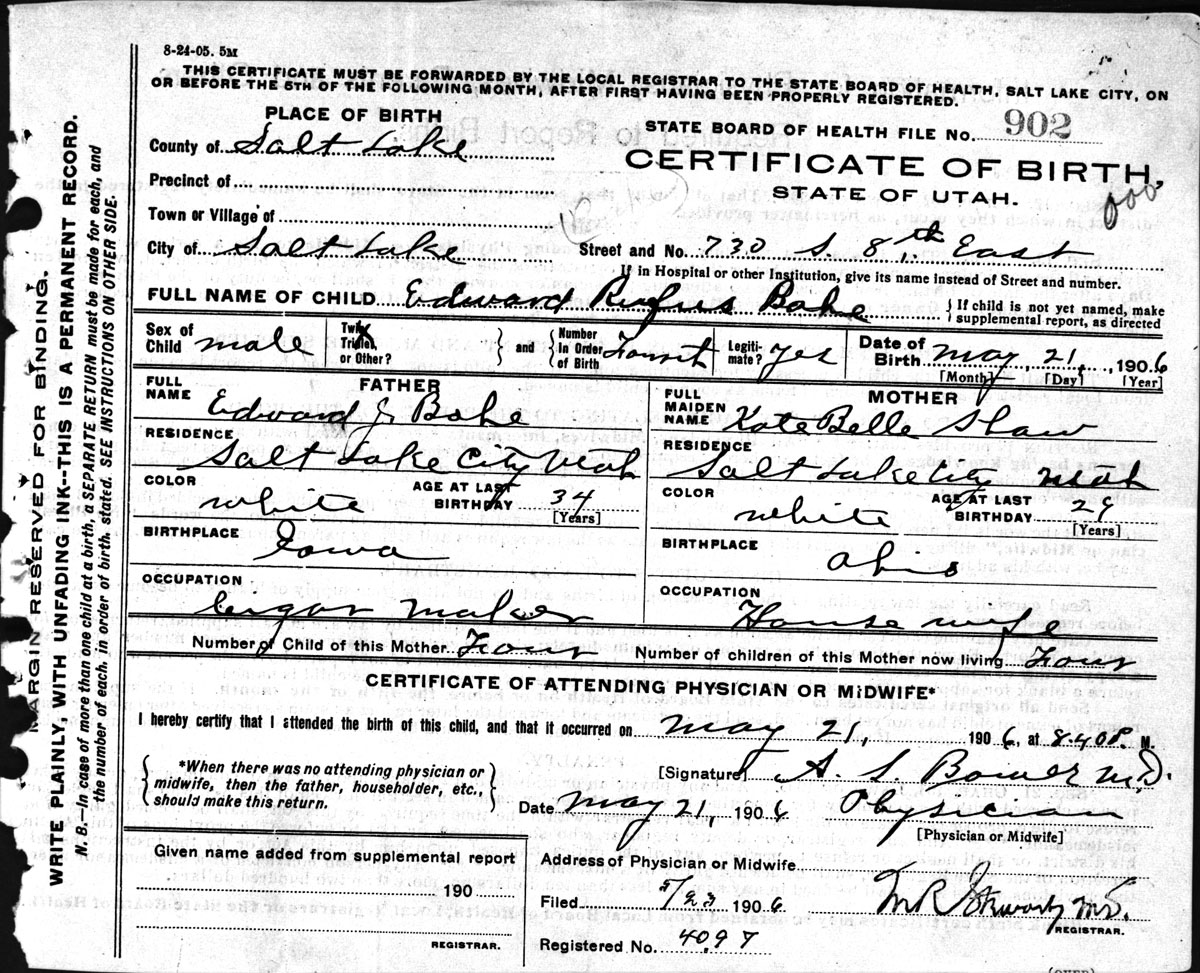 8-24-05. 5M
THIS CERTIFICATE MUST BE FORWARDED BY THE LOCAL REGISTRAR TO THE STATE BOARD OF HEALTH, SALT LAKE CITY, ON
OR BEFORE THE 5TH OF THE FOLLOWING MONTH, AFTER FIRST HAVING BEEN PROPERLY REGISTERED.
PLACE OF BIRTH
STATE BOARD OF HEALTH FILE No. 902
County of Salt Lake
CERTIFICATE OF BIRTH,
Precinct of
STATE OF UTAH.
Town or Village of
City of Salt Lake Street and No. 730 S. 8th East
If in Hospital or other Institution, give its name instead of Street and number.
FULL NAME OF CHILD Edward Rufus Bake { If child is not yet named, make supplemental report, as directed
Sex of Child male Twin, Triplet, or Other? } and { Number In Order of Birth Legitimate? yes Date of Birth May, 21, 1906
[Month] [Day] [Year]
FATHER
FULL NAME Edward J. Bake
RESIDENCE
Salt Lake City Utah
COLOR white AGE AT LAST BIRTHDAY 34
[Years]
BIRTHPLACE Iowa
OCCUPATION
Cigar maker
MOTHER
FULL MAIDEN NAME Kate Belle Shaw
RESIDENCE
Salt Lake City Utah
COLOR white AGE AT LAST BIRTHDAY 29
[Years]
BIRTHPLACE Ohio
OCCUPATION
House wife
Number of Child of this Mother Four Number of children of this Mother now living Four
CERTIFICATE OF ATTENDING PHYSICIAN OR MIDWIFE*
I hereby certify that I attended the birth of this child, and that it occurred on May 21, 1906, at 8.40 P. M.
{ *When there was no attending physician or midwife, then the father, householder, etc., should make this return. }
[Signature] A. S. Bower M.D.
Date May 21, 1906 Physician
[Physician or Midwife]
Given name added from supplemental report
190
REGISTRAR.
Address of Physician or Midwife
Filed 5/23 1906 M.D.
REGISTRAR.
Registered No. 4097
(OVER)
MARGIN RESERVED FOR BINDING.
WRITE PLAINLY, WITH UNFADING INK--THIS IS A PERMANENT RECORD.
N. B.--In case of more than one child at a birth, a SEPARATE RETURN must be made for each, and
the number of each, in order of birth, stated. SEE INSTRUCTIONS ON OTHER SIDE.